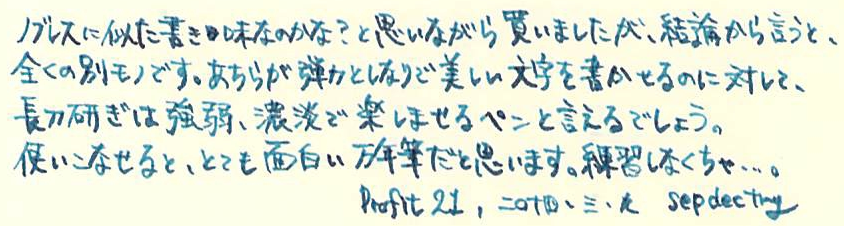 ノブレスに似た書き味なのかな？と思いながら買いましたが、結論から言うと、
全くの別モノです。あちらが弾力としなりで美しい文字を書かせるのに対して、
長刀研ぎは強弱、濃淡で楽しませるペンと言えるでしょう。
使いこなせると、とても面白い万年筆だと思います。練習しなくちゃ…。
Profit 21, 二〇十四、三、